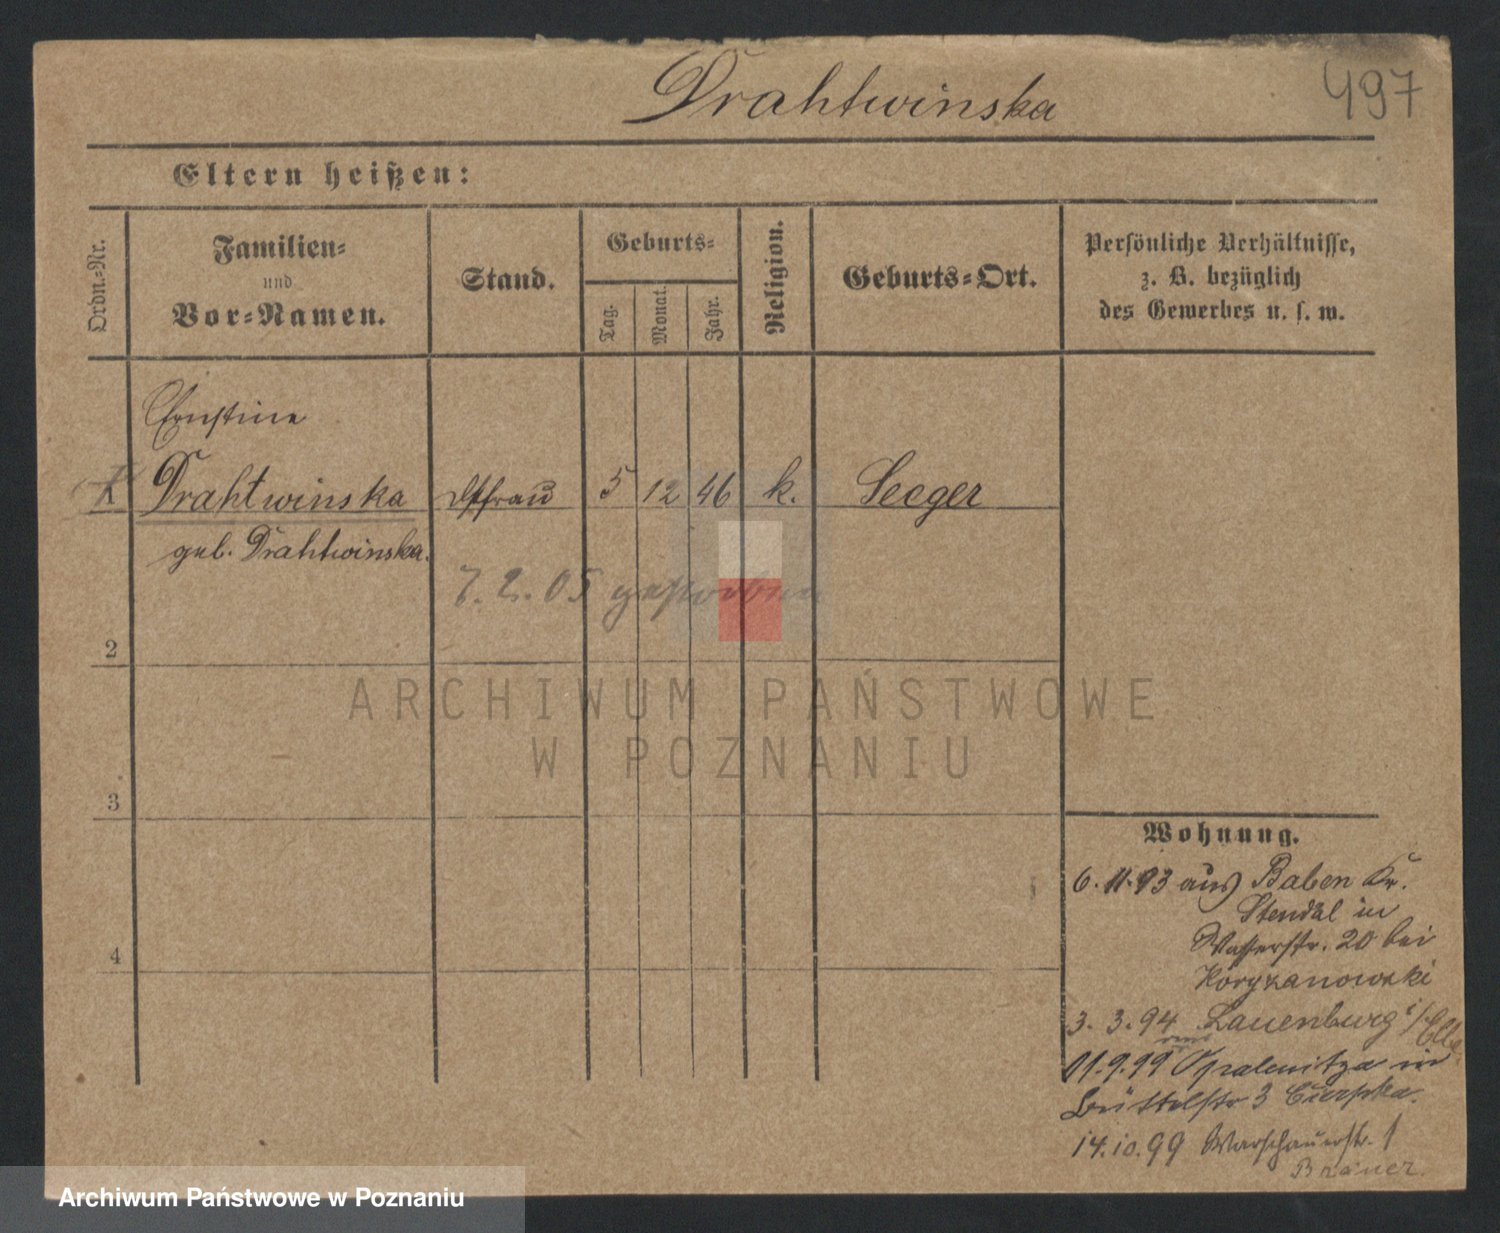 Drahtwinska
497
Eltern heißen:
Ordn.-Nr.
Familien-
und
Vor-Namen.
Stand.
Geburts-
Tag.
Monat.
Jahr.
Religion.
Geburts-Ort.
Persönliche Verhältnisse,
z. B. bezüglich
des Gewerbes u. s. w.
Ernstine
1 Drahtwinska 5 12 46 k. Seeger
geb. Drahtwinska.
7. 2. 05 gestorben
2
ARCHIWUM PAŃSTWOWE
W POZNANIU
3
Wohnung.
6. 11. 93 aus Baben Kr.
Stendal in
Wasserstr. 20 bei
4
3. 3. 94 Lauenburg i/Elbe
9. 99 Opalenitza in
Büttelstr 3
14. 10. 99 Warschauerstr. 1
Brauer
Archiwum Państwowe w Poznaniu